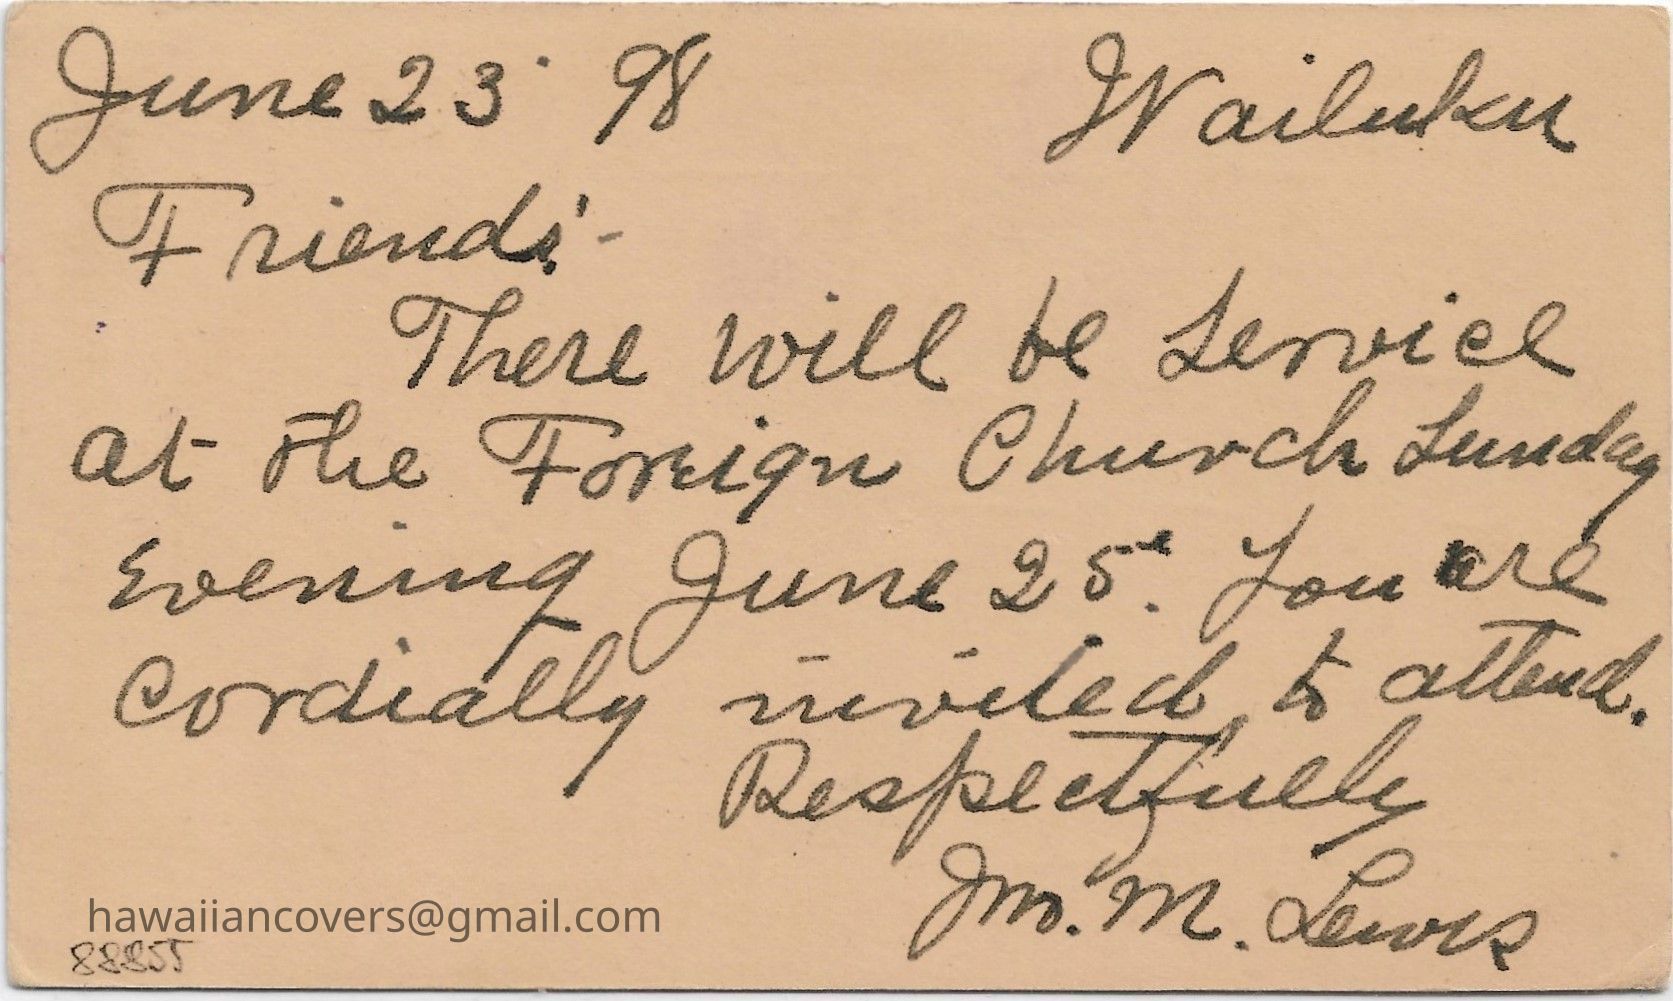 June 23 98 Wailuku
Friends:-
There will be Service
at the Foreign Church Sunday
Evening June 25. You are
Cordially invited, to attend.
Respectfully
Jno. M. Lewis
hawaiiancovers@gmail.com